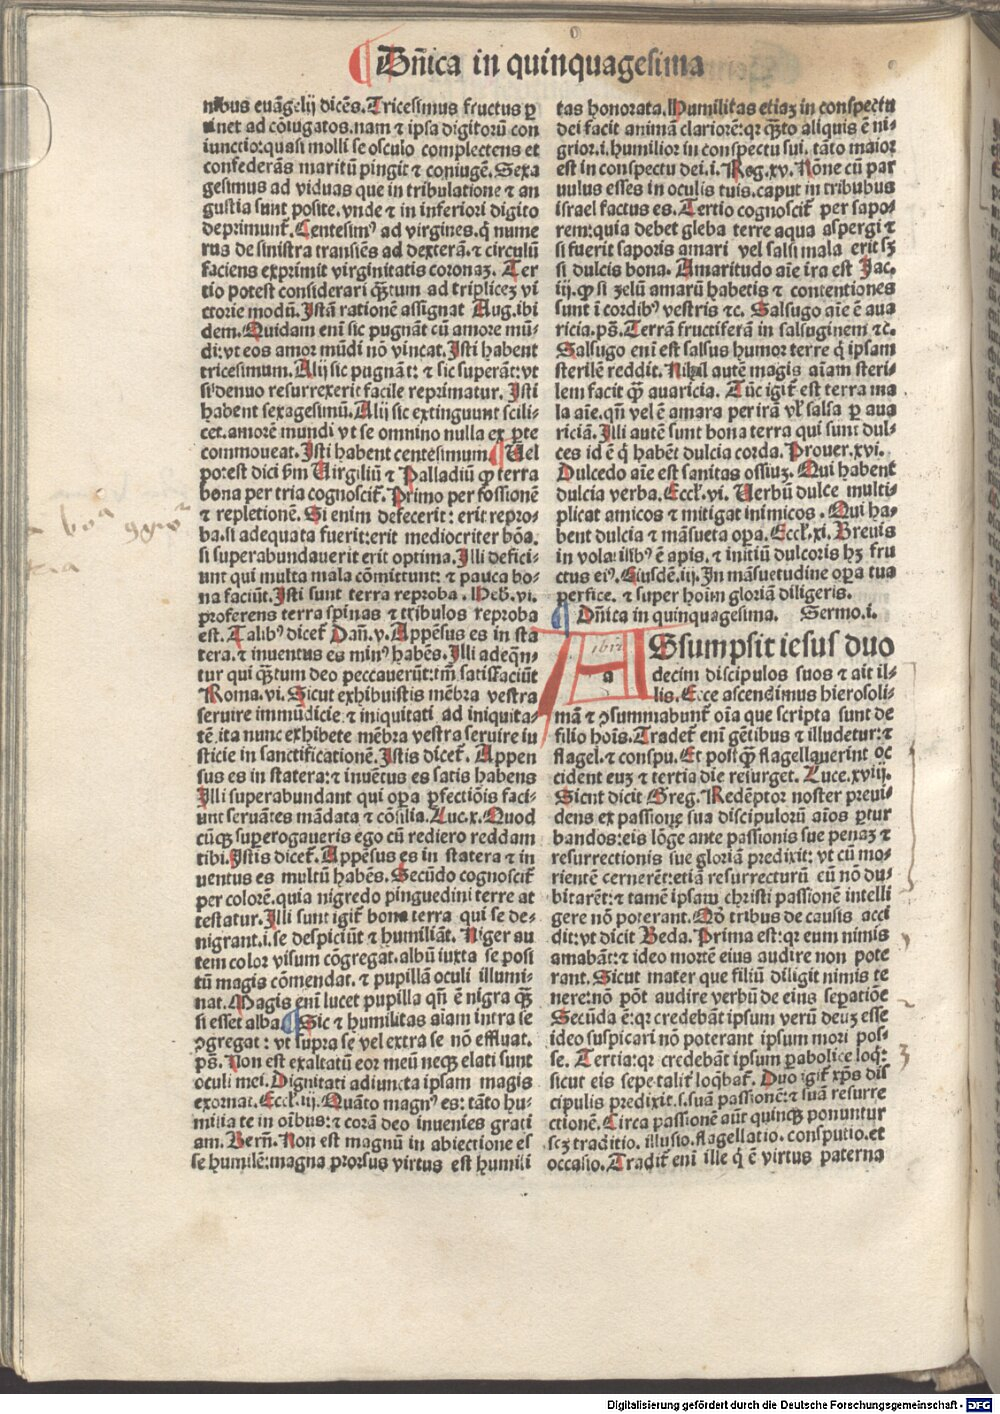 Dñica in quinquagesima
nibus euãgelij dicẽs. Tricesimus fructus ꝑ
tinet ad cõiugatos. nam ⁊ ipsa digitorũ con
iunctio: quasi molli se osculo complectens et
confederãs maritũ pingit ⁊ coniugẽ. Sexa
gesimus ad viduas que in tribulatione ⁊ an
gustia sunt posite. vnde ⁊ in inferiori digito
deprimunt̃. Centesimꝰ ad virgines. q̃ nume
rus de sinistra transiẽs ad dexterã. ⁊ circulũ
faciens exprimit virginitatis coronaꝫ. Ter
tio potest considerari q̃tum ad tripliceꝫ vi
ctorie modũ. Istã rationẽ assignat Aug. ibi
dem. Quidam enĩ sic pugnãt cũ amore mũ⸗
di: vt eos amor mũdi nõ vincat. Isti habent
tricesimum. Alij sic pugnãt: ⁊ sic superãt: vt
si denuo resurrexerit facile reprimatur. Isti
habent sexagesimũ. Alij sic extinguunt scili⸗
cet. amorẽ mundi vt se omnino nulla ex ꝑte
commoueat. Isti habent centesimum. Uel
potest dici ẜm Uirgiliũ ⁊ Palladiũ ꝙ terra
bona per tria cognoscit̃. Primo per fossionẽ
⁊ repletionẽ. Si enim defecerit: erit repro⸗
ba. si adequata fuerit: erit mediocriter bõa.
si superabundauerit erit optima. Illi defici⸗
unt qui multa mala cõmittunt: ⁊ pauca bo⸗
na faciũt. Isti sunt terra reproba. Heb̃. vi.
proferens terra spinas ⁊ tribulos reproba
est. Talibꝰ dicet̃ Dañ. v. Appẽsus es in sta
tera. ⁊ inuentus es minꝰ habẽs. Illi adeq̃n⸗
tur qui q̃tum deo peccauerũt: tm̃ satisfaciũt
Roma. vi. Sicut exhibuistis mẽbra vestra
seruire immũdicie: ⁊ iniquitati ad iniquita⸗
tẽ. ita nunc exhibete mẽbra vestra seruire iu
sticie in sanctificationẽ. Istis dicet̃. Appen
sus es in statera: ⁊ inuẽtus es satis habens
Illi superabundant qui oꝑa ꝑfectiõis faci⸗
unt seruãtes mãdata ⁊ cõsilia. Luc. x. Quod
cũq̃ supererogaueris ego cũ rediero reddam
tibi. Istis dicet̃. Appẽsus es in statera ⁊ in
uentus es multũ habẽs. Secũdo cognoscit̃
per colorẽ. quia nigredo pinguedini terre at
testatur. Illi sunt igit̃ bona terra qui se de⸗
nigrant. i. se despiciũt ⁊ humiliãt. Niger au
tem color visum cõgregat. albũ iuxta se posi
tũ magis cõmendat. ⁊ pupillã oculi illumi⸗
nat. Magis enĩ lucet pupilla qñ ẽ nigra q̃ꝫ
si esset alba. Sic ⁊ humilitas aiam intra se
ꝯgregat: vt supra se vel extra se nõ effluat.
ps̃. Non est exaltatũ cor meũ neqꝫ elati sunt
oculi mei. Dignitati adiuncta ipsam magis
exornat. Eccl̃. iij. Quãto magnꝰ es: tãto hu⸗
milia te in oĩbus: ⁊ corã deo inuenies grati
am. Berñ. Non est magnũ in abiectione es
se humilẽ: magna prorsus virtus est humili
tas honorata. Humilitas etiaꝫ in conspectu
dei facit animã clariorẽ: qꝛ q̃to aliquis ẽ ni⸗
grior. i. humilior in conspectu sui. tãto maior
est in conspectu dei. i. Reg. xv. Nõne cũ par
uulus esses in oculis tuis. caput in tribubus
israel factus es. Tertio cognoscit̃ per sapo⸗
rem: quia debet gleba terre aqua aspergi ⁊
si fuerit saporis amari vel salsi mala erit sꝫ
si dulcis bona. Amaritudo aĩe ira est Jac.
iij. ꝙ si zelũ amarũ habetis ⁊ contentiones
sunt ĩ cordibꝰ vestris ⁊c. Salsugo aĩe ẽ aua
ricia. ps̃. Terrã fructiferã in salsuginem ⁊c̃.
Salsugo enĩ est salsus humor terre q̃ ipsam
sterilẽ reddit. Nihil autẽ magis aĩam steri⸗
lem facit q̃ auaricia. Tũc igit̃ est terra ma
la aĩe. qñ vel ẽ amara per irã vl̃ salsa ꝑ aua
riciã. Illi autẽ sunt bona terra qui sunt dul⸗
ces id ẽ q̃ habẽt dulcia corda. Prouer. xvi.
Dulcedo aĩe est sanitas ossiuꝫ. Qui habent
dulcia verba. Eccl̃. vi. Uerbũ dulce multi⸗
plicat amicos ⁊ mitigat inimicos. Qui ha⸗
bent dulcia ⁊ mãsueta oꝑa. Eccl̃. xi. Breuis
in volatilibꝰ ẽ apis. ⁊ initiũ dulcoris hꝫ fru
ctus eiꝰ. Eiusdẽ. iij. In mãsuetudine oꝑa tua
perfice. ⁊ super hoĩm gloriã diligeris.
Dñica in quinquagesima. Sermo. i.
a
Assumpsit iesus duo
decim discipulos suos ⁊ ait il⸗
lis. Ecce ascendimus hierosoli⸗
mã ⁊ ꝯsummabunt̃ oĩa que scripta sunt de
filio hoĩs. Tradet̃ enĩ gẽtibus ⁊ illudetur: ⁊
flagel. ⁊ conspu. Et postq̃ flagellauerint oc
cident euꝫ ⁊ tertia die resurget. Luce. xviij.
Sicut dicit Greg. Redẽptor noster preui⸗
dens ex passione sua discipulorũ aĩos ꝑtur
bandos: eis lõge ante passionis sue penaꝫ ⁊
resurrectionis sue gloriã predixit: vt cũ mo⸗
rientẽ cernerẽt: etiã resurrecturũ eũ nõ du⸗
bitarẽt: ⁊ tamẽ ipsam christi passionẽ intelli
gere nõ poterant. Qõ tribus de causis acci
dit: vt dicit Beda. Prima est: qꝛ eum nimis
amabãt: ⁊ ideo mortẽ eius audire non pote
rant. Sicut mater que filiũ diligit nimis te
nere: nõ põt audire verbũ de eius seꝑatiõe
Secũda ẽ: qꝛ credebãt ipsum verũ deuꝫ esse
ideo suspicari nõ poterant ipsum mori pos⸗
se. Tertia: qꝛ credebãt ipsum ꝑabolice loq̃:
sicut eis sepe talit̃ loq̃bat̃. Duo igit̃ xp̃s dis
cipulis predixit. s. suã passionẽ: ⁊ suã resurre
ctionẽ. Circa passionẽ aũt quinqꝫ ponuntur
scꝫ traditio. illusio. flagellatio. consputio. et
occasio. Tradit̃ enĩ ille q̃ ẽ virtus paterna
Digitalisierung gefördert durch die Deutsche Forschungsgemeinschaft - DFG